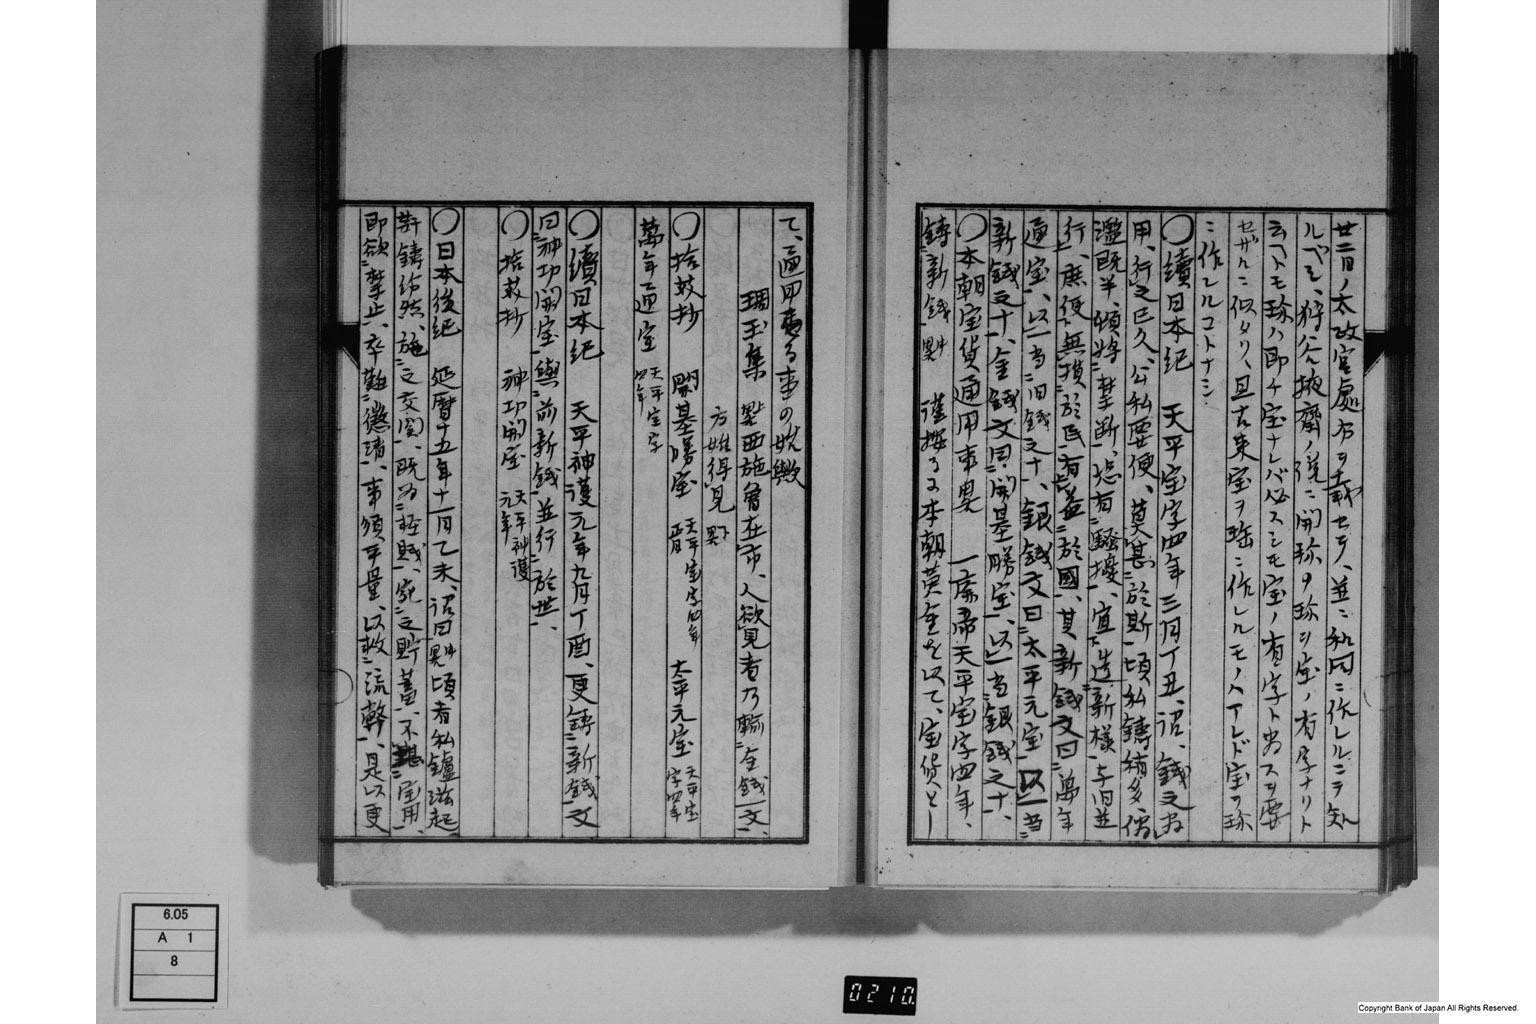 廿二日ノ太政官處分ヲ載セテ、並ニ和同ニ作レルニテ知
ルベシ、狩谷掖齋ノ説ニ開珎ヲ珎シ宝ノ省字ナリト
云ヘトモ珎ハ即チ宝ナレバ必スシモ宝ノ省字ト為スヲ要
セザルニ似タリ、且古来宝ヲ珤ニ作レルモノハアレド宝ヲ珎
ニ作レルコトナシ
〇續日本紀 天平宝字四年三月丁丑、詔、錢之為
用、行之已久、公私要便、莫甚於斯、頃私鋳稍多、偽
濫既半、頓将禁断、恐有騒擾、宜造新様与旧並
行、庶使無損於民、有益於國、其新錢文曰萬年
通宝、以一当旧錢之十、銀錢文曰太平元宝以一当
新錢之十、金錢文曰開基勝宝、以一当銀錢之十、
〇本朝宝貨通用事畧 一廃帝天平宝字四年、
鋳新錢 畧中 謹按るに本朝黄金を以て、宝貨とし
て、通用
琱玉集 西施曾在市、人欲見者乃輸金錢一文、
方始得見
〇拾芥抄 開基勝宝 天平宝字四年 太平元宝 天平宝字四年
萬年通宝 天平宝字四年
〇續日本紀 天平神護元年九月丁酉、更鋳新錢、文
曰神功開宝、與前新錢並行於世、
〇拾芥抄 神功開宝 天平神護元年
〇日本後紀 延暦十五年十一月乙未、詔曰 畧中 頃者私鑪滋起、
姧鋳紛然、施之交関、既為軽賎、蔵之貯蓄、不堪宝用、
即欲禁止、卒難懲清、事須平量、以救流弊、是以更
6.05
A 1
8
0210.
Copyright Bank of Japan All Rights Reserved.